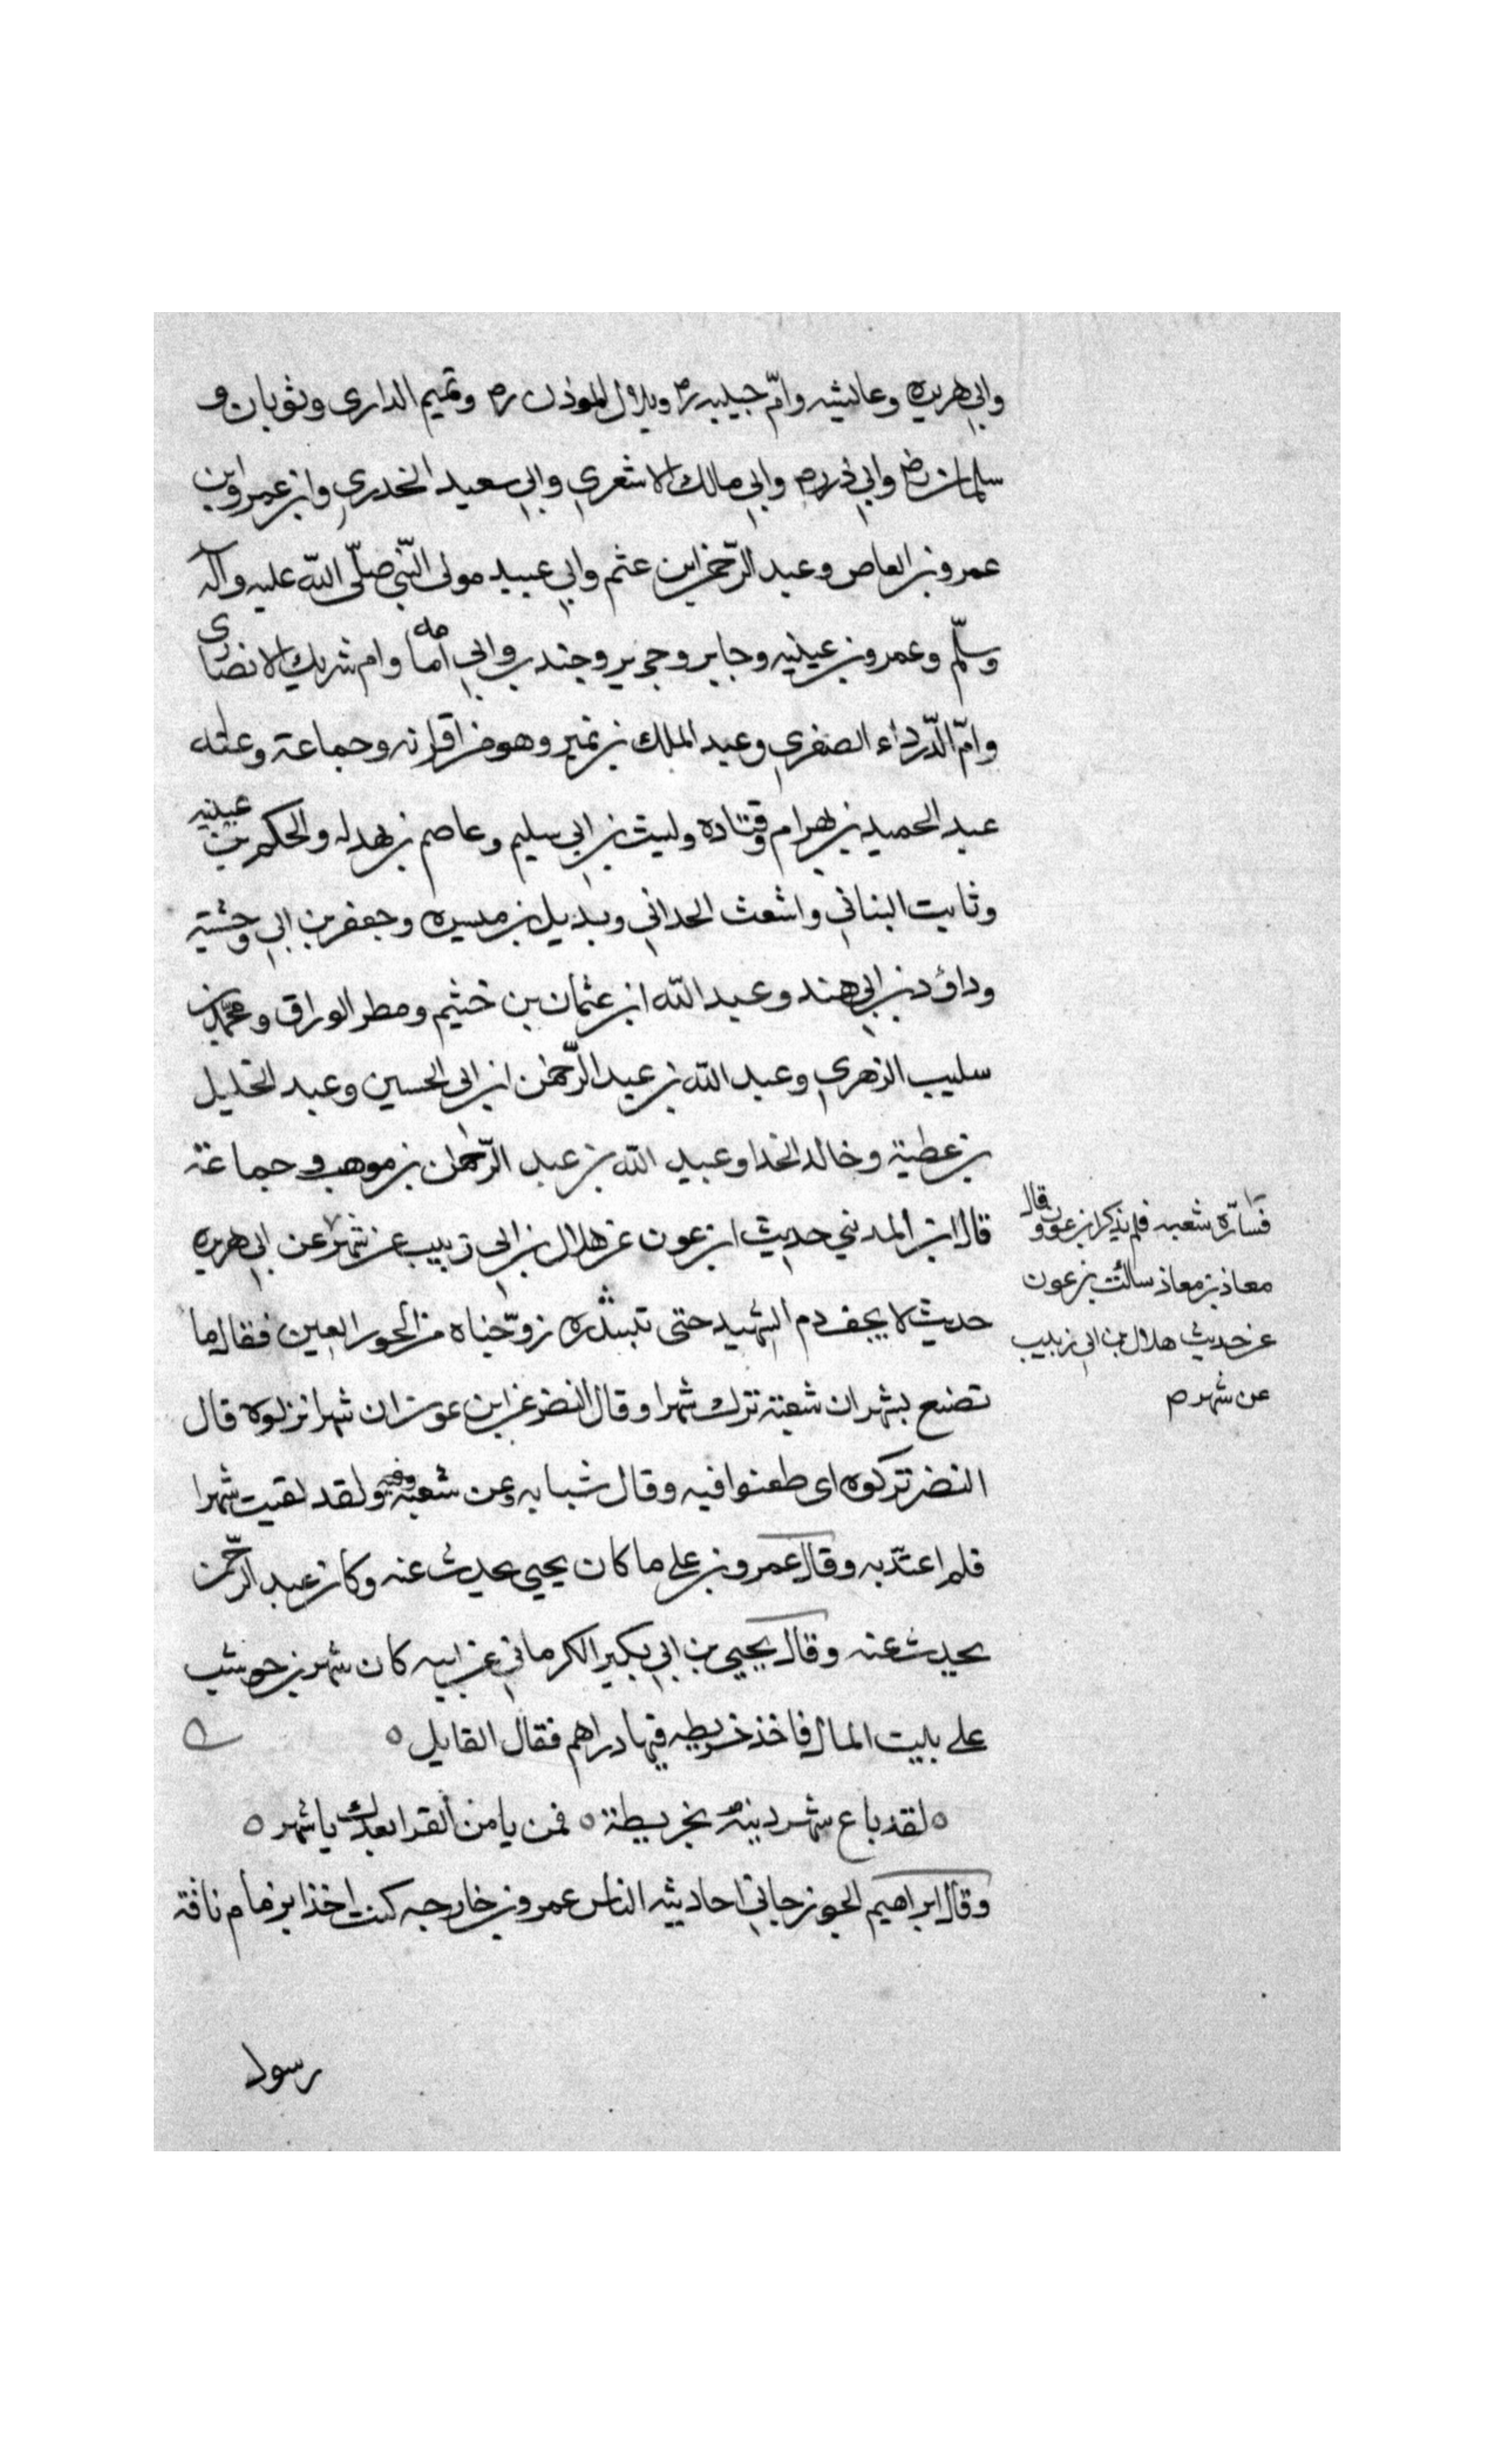 وابي هريره وعايشه وامّ حبيبه رض وبلال الموذن رض وتميم الداري وثوبان و
سلمان رض وابي ذر رض وابي مالك الاشعري وابي سعيد الخدري وابن عمر وابن
عمرو بن العاص وعبد الرّحمن ابن عثم وابي عبيد مولى النّبي صلّى الله عليه وآله
وسلّم وعمرو بن عيينه وجابر وجرير وجندب وابي أمامه وام شريك الانصاري
وامّ الدّرداء الصغري وعبد الملك بن نمير وهو من اقرانه وجماعة وعنه
عبد الحميد بن بهرام وقتاده وليث بن ابي سليم وعاصم بن بهدله والحكم بن عيينه
وثابت البناني واشعث الحداني وبديل بن ميسره وجعفر بن ابي وحشية
وداؤد بن ابي هند وعبد الله ابن عثمان بن خثيم ومطر الوراق ومحمّد بن
سليب الزهري وعبد الله بن عبد الرّحمن ابن ابي الحسين وعبد الخليل
بن عطية وخالد الخدا وعبيد الله بن عبد الرّحمان بن موهب وجماعة
قال ابن المديني حديث ابن عون عن هلال بن ابي زبيب عن شهر عن ابي هريره
حديث لا يجف دم الشهيد حتى تبتدره زوّجناه من الحور العين فقال ما
تصنع بشهر ان شعبة ترك شهرا وقال النضر عن ابن عون ان شهرا نزلوه قال
النضر تركوه اى طعنوا فيه وقال شبابه وعن شعبة ولقد لقيت شهرا
فلم اعتدّ به وقال عمرو بن علي ما كان يحيي يحدث عنه وكان عبد الرّحمن
يحدث عنه وقال يحيي بن ابي بكير الكرماني عن ابيه كان شهر بن حوشب
علي بيت المال فاخذ خريطه فيها دراهم فقال القايل ه
ه لقد باع شهر دينه بخريطة ه فمن يامن القرا بعدك يا شهر ه
وقال ابراهيم الجوزجاني احاديثه الناس عمرو بن خارجه كنت اخذا بزمام ناقة
رسول
فسارّه شعبه فلم يذكر ابن عون وقال
معاذ بن معاذ سالت بن عون
عن حديث هلال بن ابي زبيب
عن شهر ص